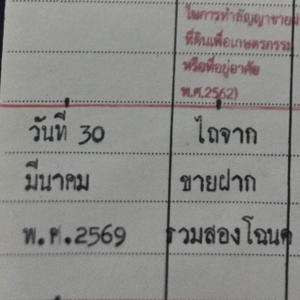 ในการทำสัญญาขายฝาก
ที่ดินเพื่อเกษตรกรรม
หรือที่อยู่อาศัย
พ.ศ.2562)
วันที่ 30 ไถ่จาก
มีนาคม ขายฝาก
พ.ศ.2569 รวมสองโฉนด